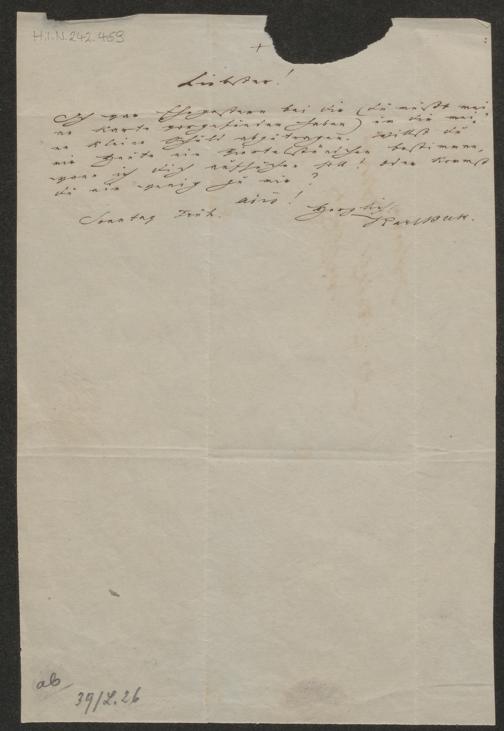 H.I.N. 242.459
+
Liebster!
Ich war Ehegestern bei dir (du mußt mei
ne Karte vorgefunden haben) um dir mei
ne kleine Schuld abzutragen. Willst du
mir heute ein Viertelstündchen bestimmen,
wann ich dich aufsuchen soll? Oder kommst
du ein wenig zu mir?
Sonntag Früh.
Herzlich
ab
39/L. 26